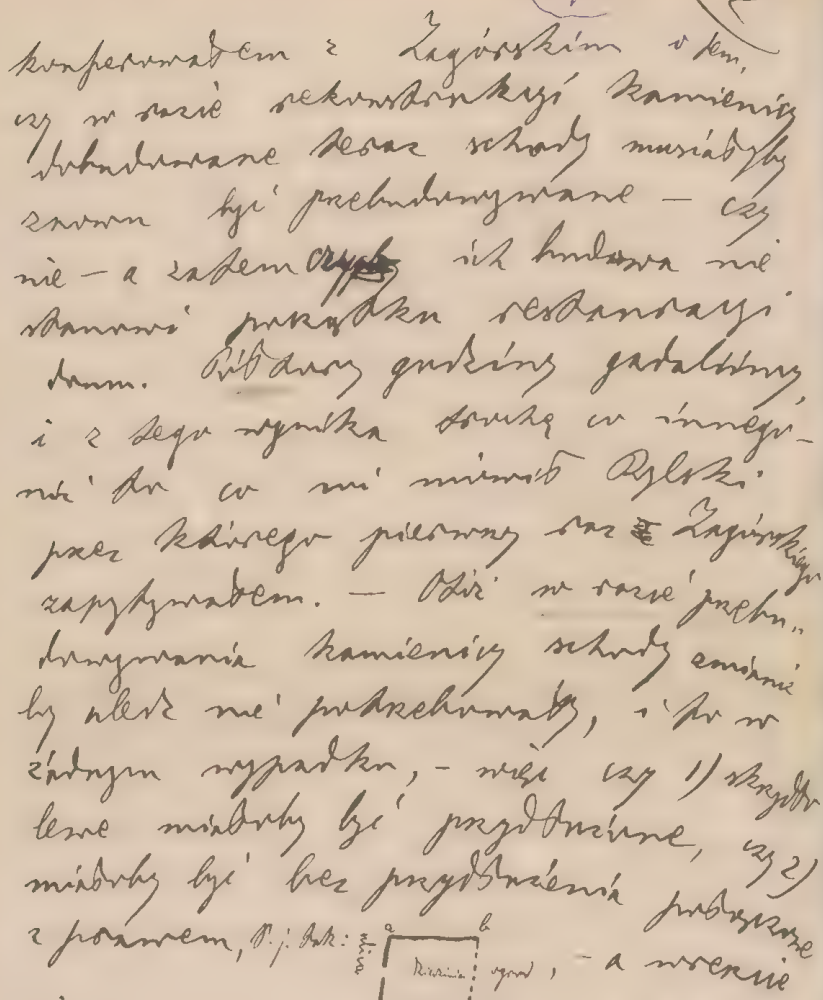 konferowałem z Zagórskim o tem,
czy w razie rekonstrukcyi kamienicy
dobudowane teraz schody musiałyby
znowu być przebudowywane — czy
nie — a zatem ich budowa nie
stanowi początku restauracyi
domu. Pół tory godziny gadaliśmy,
i z tego wynika trochę co innego -
niż to co mi mówił Rylski
przez którego pierwszy raz Zagórskiego
zapytywałem. — Otóż w razie przebu„
dowywania kamienicy schody zmianie
by uledz nie potrzebowały, i to w
żadnym wypadku, - więc czy 1) skrzydło
lewe miałoby być przydłużone, czy 2)
miałoby być bez przydłużenia połączone
z prawem, t. j. tak: - a wreszcie
a b
ulica
Dziedziniec ogród,